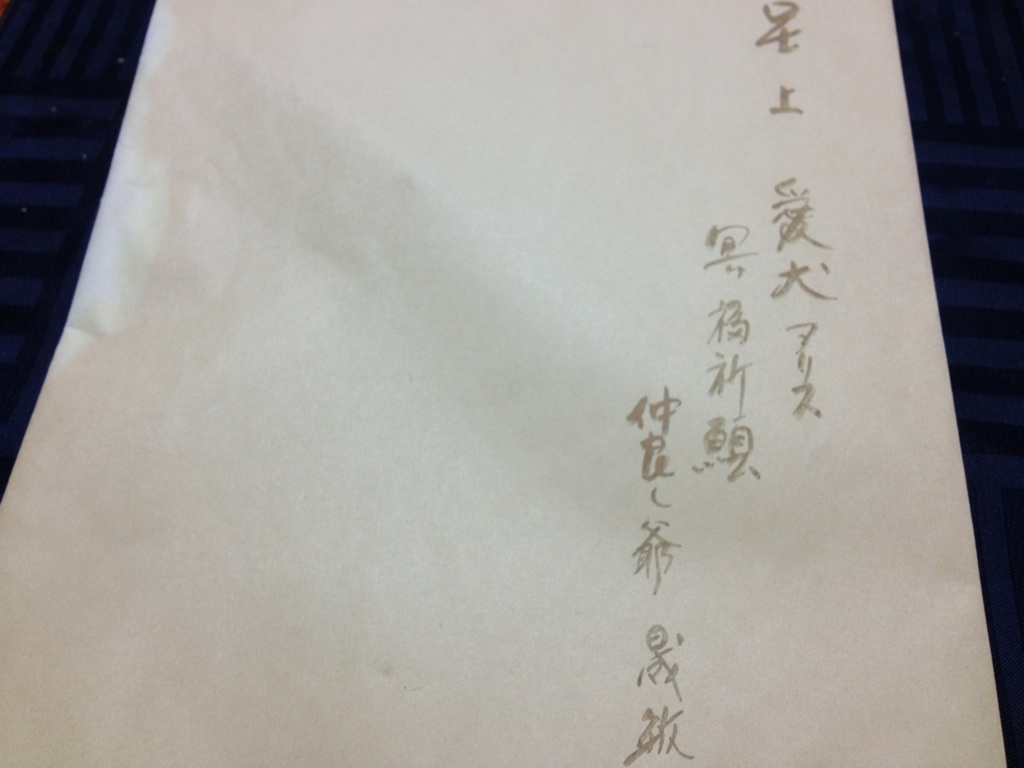 呈上 愛犬 アリス
冥福祈願
仲良し爺 晟敏